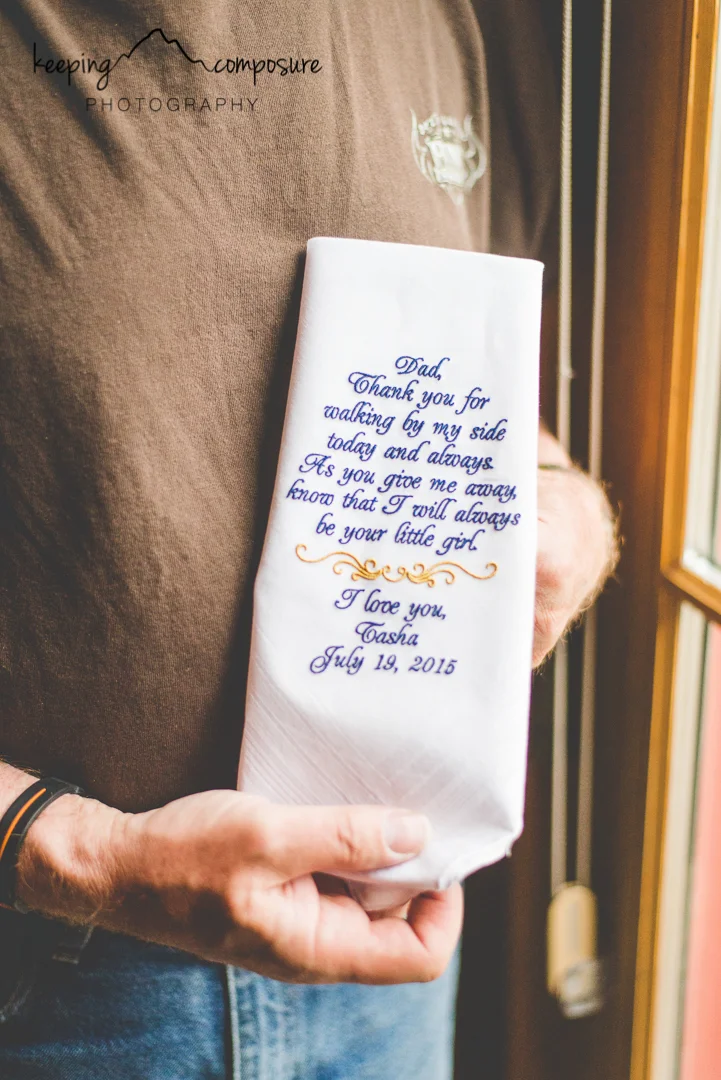 keeping composure
PHOTOGRAPHY
Dad,
Thank you for
walking by my side
today and always.
As you give me away,
know that I will always
be your little girl.
I love you,
Tasha
July 19, 2015